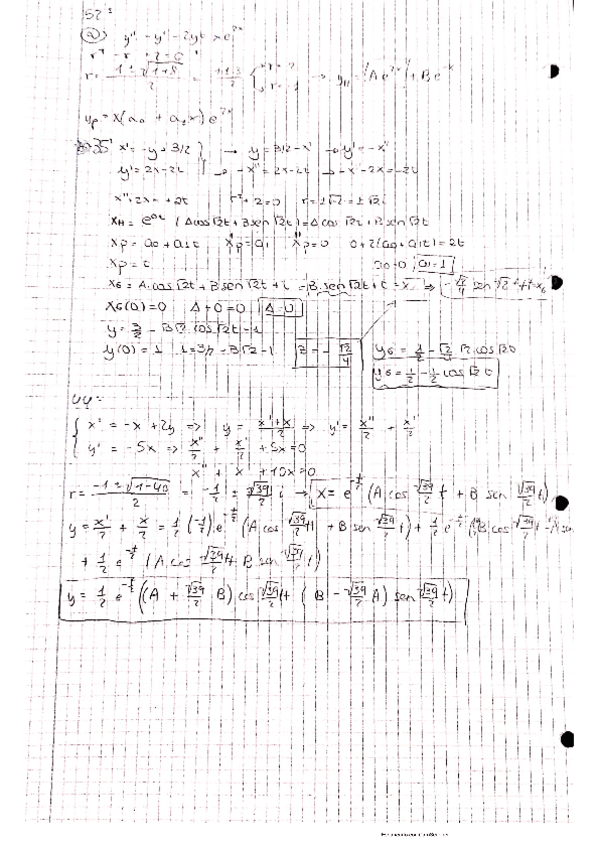 52:
a) y'' - y' - 2y = x e^{2x}
r² - r - 2 = 0
r = (1 ± √1+8)/2 = (1±3)/2 { r = 2 r = -1 → y_H = A e^{2x} + B e^{-x}
y_p = x(a₀ + a₁x) e^{2x}
x' = -y + 3/2 } → y = 3/2 - x' → y' = -x''
y' = 2x - 2t } → -x'' = 2x - 2t → -x'' - 2x = -2t
x'' + 2x = +2t r² + 2 = 0 r = ±√-2 = ±√2 i
x_H = e^{0t} (A cos √2t + B sen √2t) = A cos √2t + B sen √2t
x_p = a₀ + a₁t x_p' = a₁ x_p'' = 0 0 + 2(a₀ + a₁t) = 2t
x_p = t a₀ = 0 a₁ = 1
x_G = A cos √2t + B sen √2t + t = B sen √2t + t = x ⇒ -√2/4 sen √2t + t = x_G
x_G(0) = 0 A + 0 = 0 A = 0
y = 3/2 - B√2 cos √2t - 1
y(0) = 1 1 = 3/2 - B√2 - 1 B = -√2/4 y_G = 1/2 - √2/4 √2 cos √2t
y_G = 1/2 - 1/2 cos √2t
44:
{ x' = -x + 2y ⇒ y = (x'+x)/2 ⇒ y' = x''/2 + x'/2
y' = -5x ⇒ x''/2 + x'/2 + 5x = 0
x'' + x' + 10x = 0
r = (-1 ± √1-40)/2 = -1/2 ± √39/2 i → x = e^{-t/2} (A cos √39/2 t + B sen √39/2 t)
y = x'/2 + x/2 = 1/2 (-1/2) e^{-t/2} (A cos √39/2 t + B sen √39/2 t) + 1/2 e^{-t/2} (B cos √39/2 t - A sen
+ 1/2 e^{-t/2} (A cos √39/2 t + B sen √39/2 t)
y = 1/2 e^{-t/2} ((A + √39/2 B) cos √39/2 t + (B - √39/2 A) sen √39/2 t)